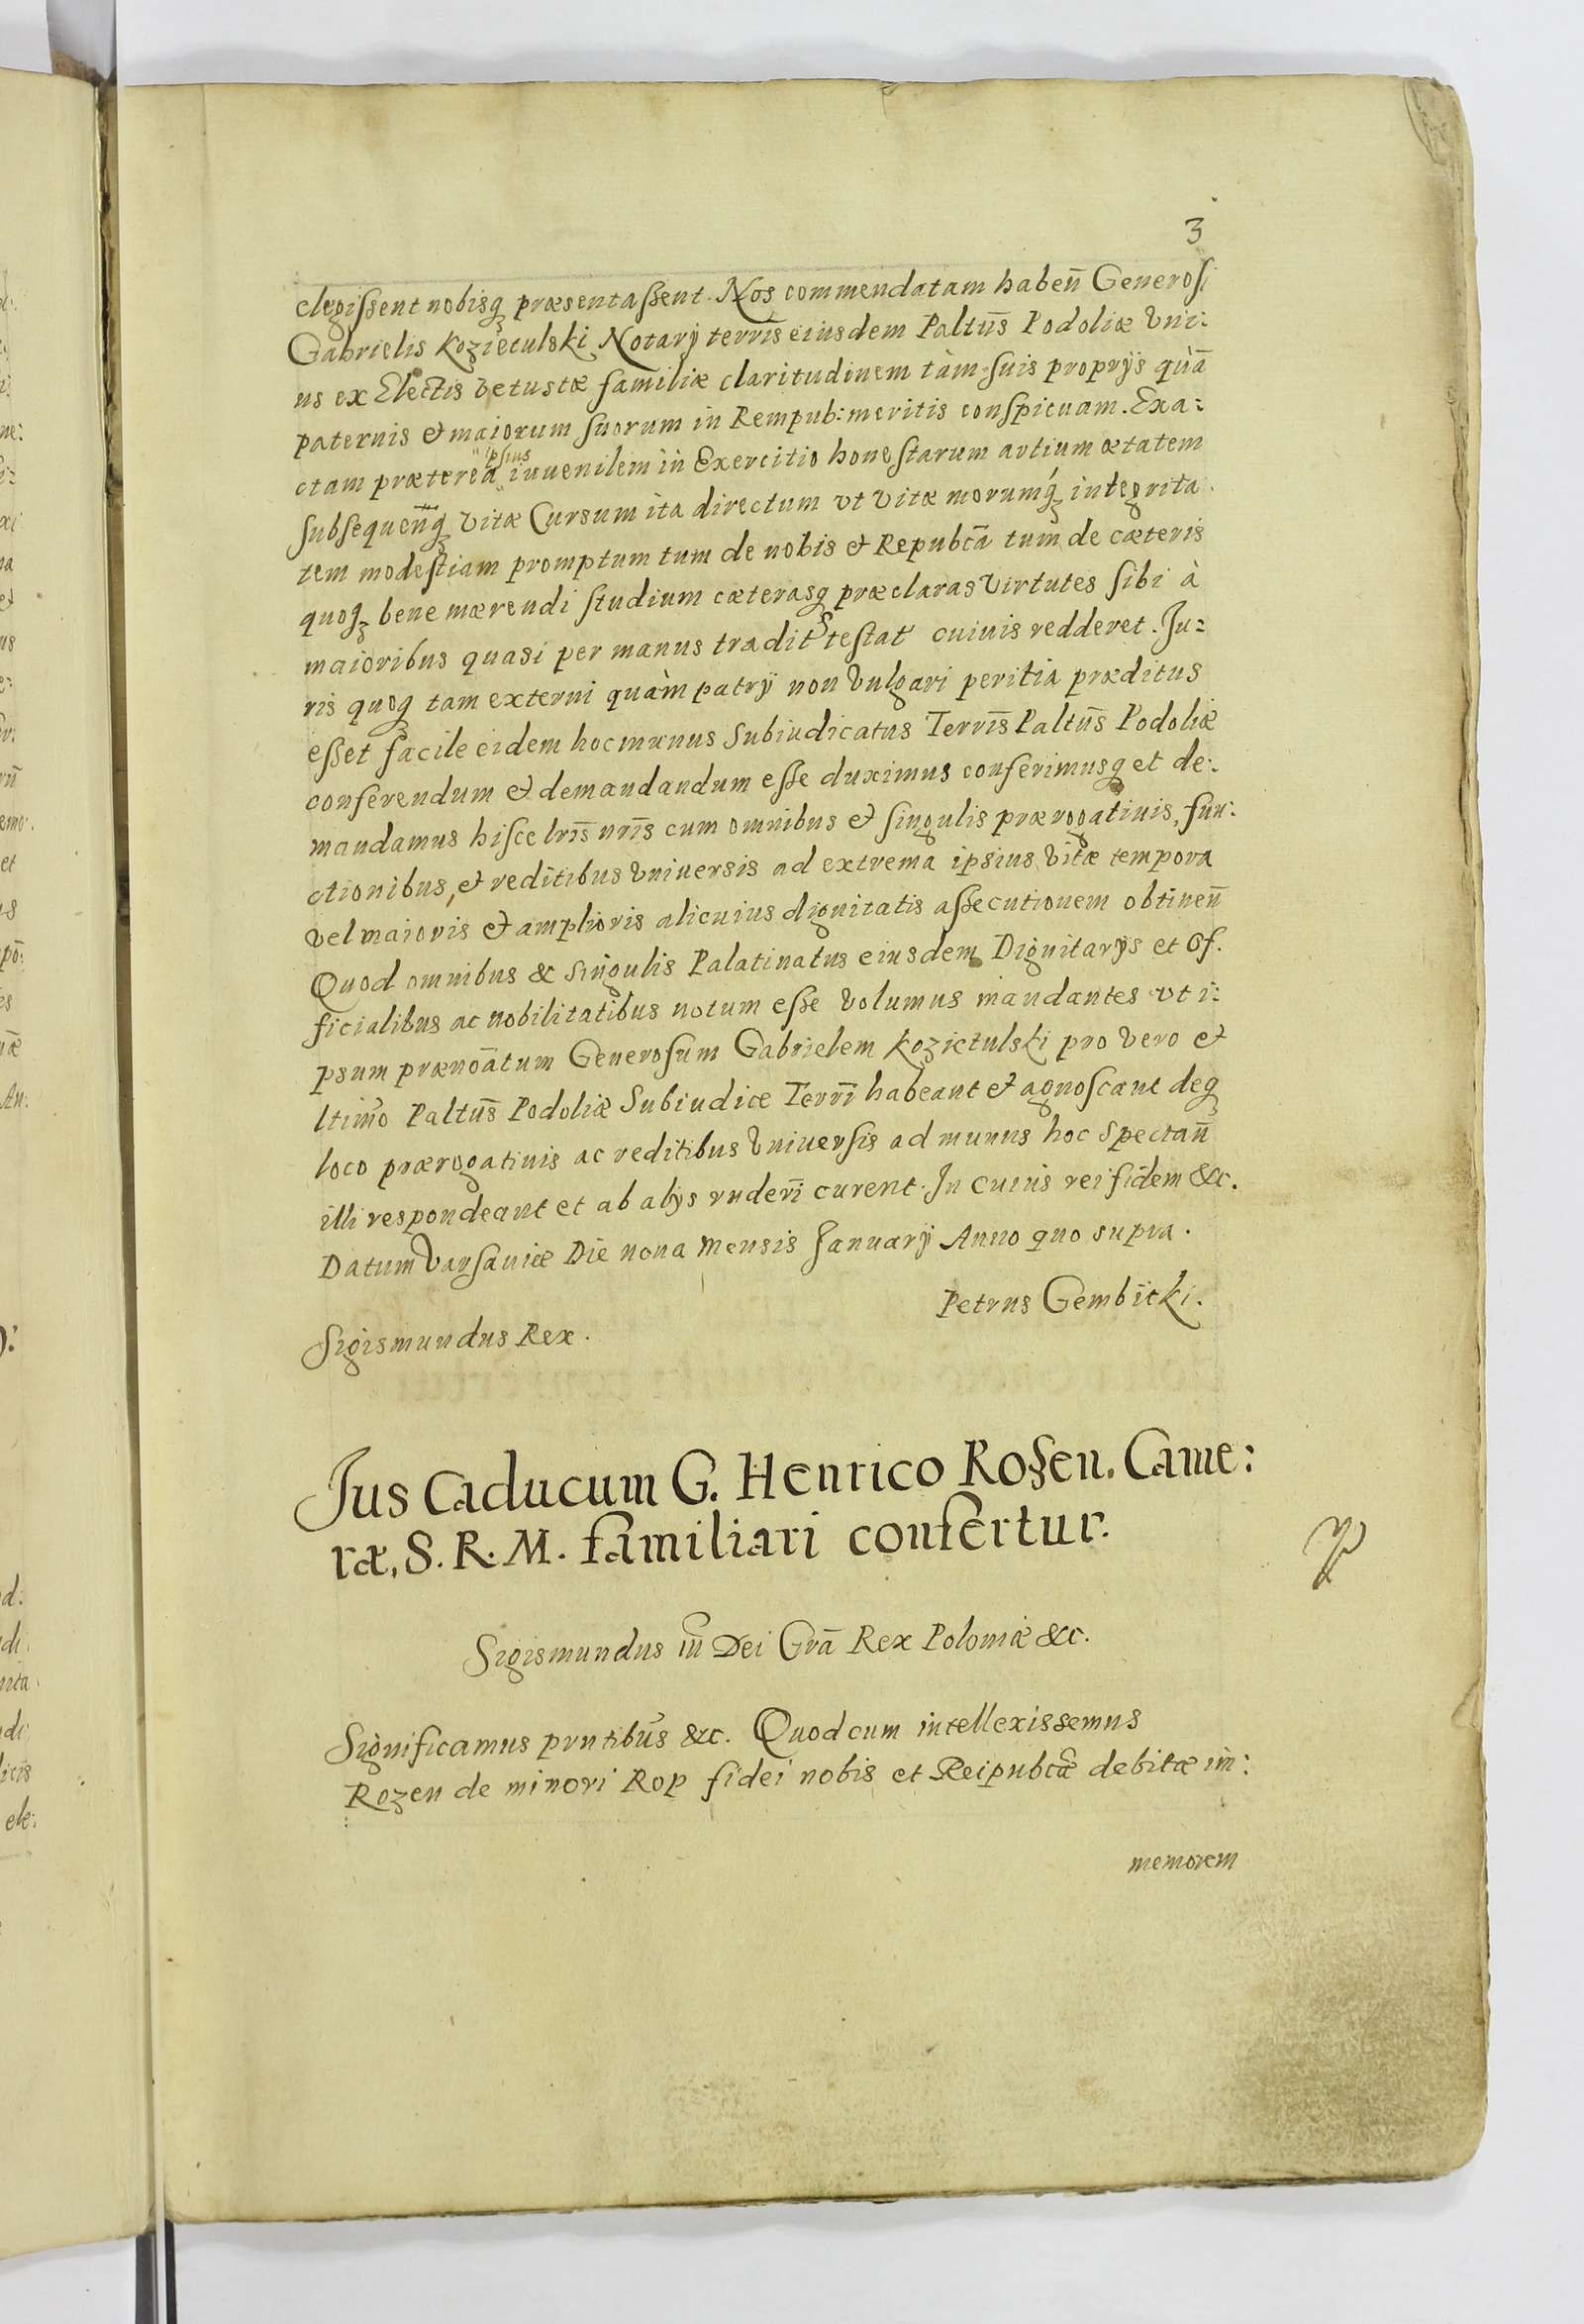 3
elegissent nobisq, præsentassent. Nos commendatam haben̄ Generosi
Gabrielis Kozietulski Notarÿ terrīs eiusdem Paltūs Podoliæ Vni:
us ex Electis vetustæ familiæ claritudinem tàm suis proprÿs quā
paternis & maiorum suorum in Rempub: meritis conspicuam. Exa:
ctam præterea ipsius iuuenilem in Exercitio honestarum artium ætatem
subsequenq, vitæ Cursum ita directum vt vitæ morumq, integrita
tem modestiam promptum tum de nobis & Repubcā tum de cæteris
quoq, bene mærendi studium cæterasq præclaras Virtutes sibi à
maioribus quasi per manus tradit testat cuiuis redderet. Ju:
ris quoq tam externi quàm patrÿ non vulgari peritia præditus
esset facile eidem hoc munus Subiudicatus Terrīs Paltūs Podoliæ
conferendum & demandandum esse duximus conferimusq et de:
mandamus hisce lrīs nrīs cum omnibus & singulis prærogatiuis, fun:
ctionibus, & reditibus vniuersis ad extrema ipsius vitæ tempora
vel maioris & amplioris alicuius dignitatis assecutionem obtinen̄
Quod omnibus & singulis Palatinatus eiusdem Dignitarÿs et Of.
ficialibus ac nobilitatibus notum esse volumus mandantes vt i:
psum prænoātum Generosum Gabrielem Kozietulski pro vero &
ltimo Paltūs Podoliæ Subiudice Terrī habeant & agnoscant deq
loco prærogatiuis ac reditibus vniuersis ad munus hoc spectan̄
illi respondeant et ab alÿs rnderī curent. In cuius rei fidem &c.
Datum Varsauiæ Die nona Mensis Januarÿ Anno quo supra.
Petrus Gembicki.
Sigismundus Rex.
Jus Caducum G. Henrico Rozen. Came:
ræ, S. R. M. familiari confertur.
Sigismundus iii Dei Grā Rex Poloniæ &c.
Significamus pnntibus &c. Quod cum intellexissemus
Rozen de minori Rop fidei nobis et Reipubcæ debitæ im:
memorem